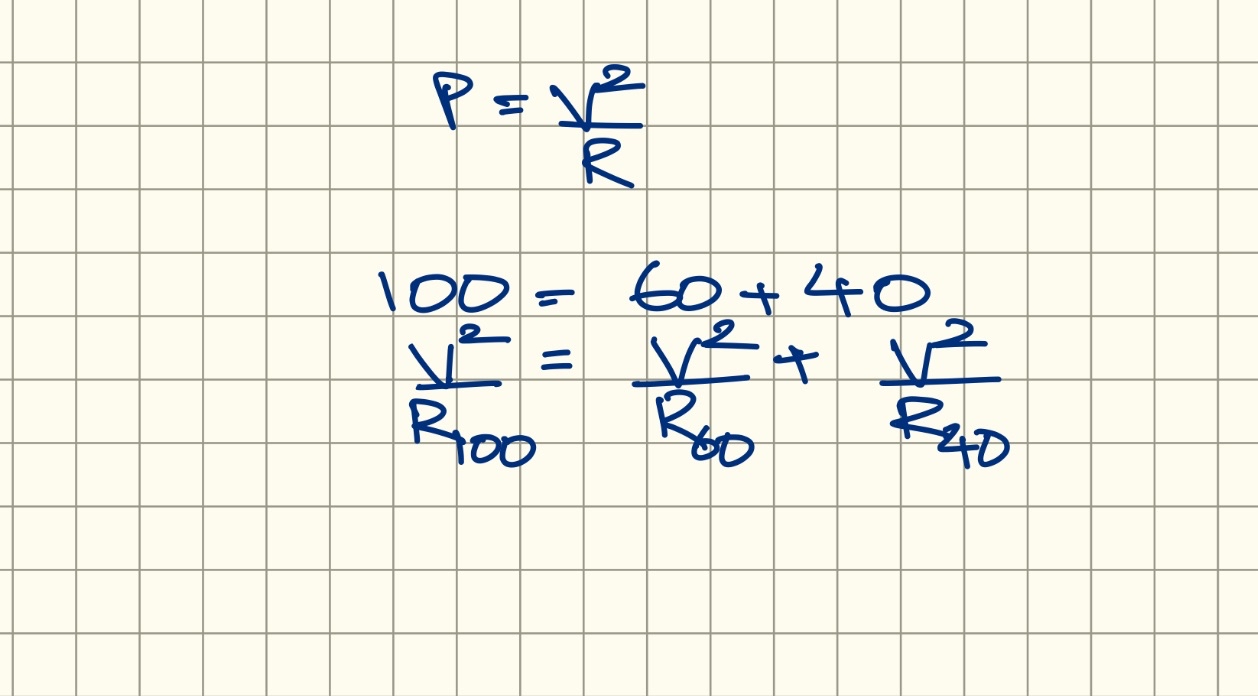 P = V²/R
100 = 60 + 40
V²/R₁₀₀ = V²/R₆₀ + V²/R₄₀